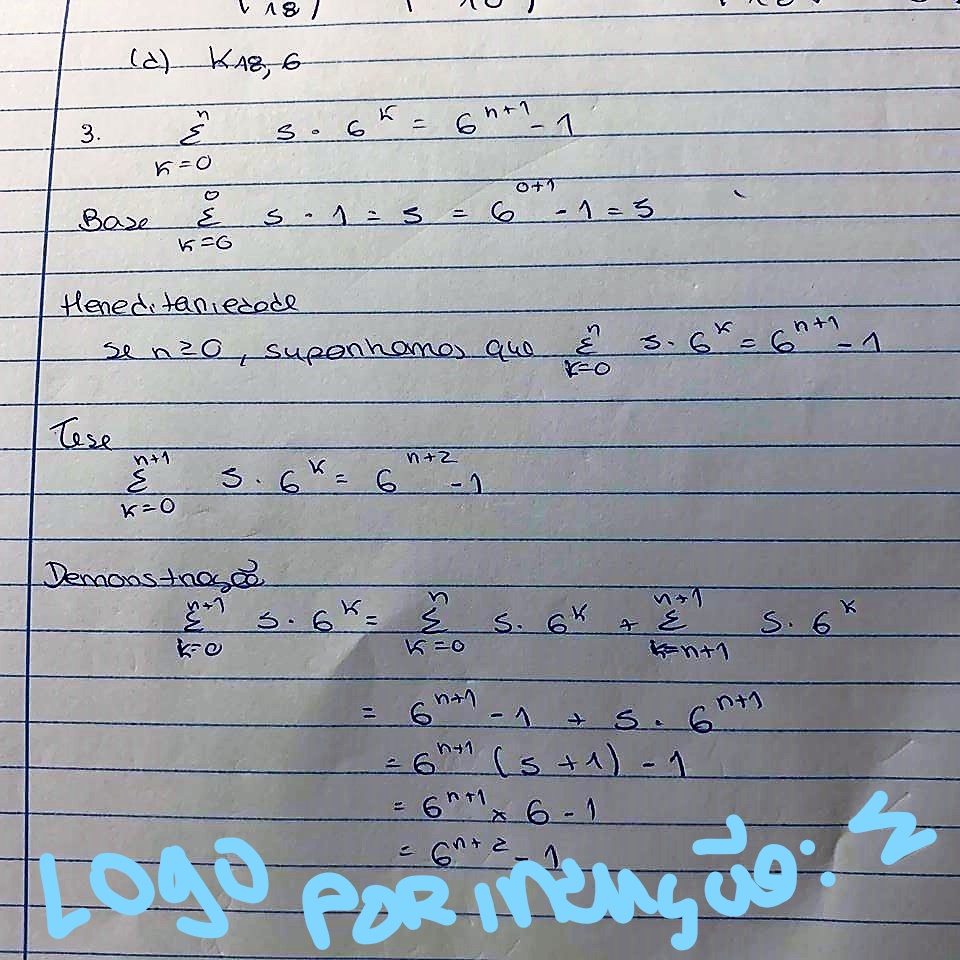 (d) K18,6
3. n Σ k=0 5 · 6^k = 6^n+1 - 1
Base 0 Σ k=0 5 · 1 = 5 = 6^0+1 - 1 = 5
Hereditariedade
se n≥0, suponhamos que n Σ k=0 5 · 6^k = 6^n+1 - 1
Tese
n+1 Σ k=0 5 · 6^k = 6^n+2 - 1
Demonstração
n+1 Σ k=0 5 · 6^k = n Σ k=0 5 · 6^k + n+1 Σ k=n+1 5 · 6^k
= 6^n+1 - 1 + 5 · 6^n+1
= 6^n+1 (5 + 1) - 1
= 6^n+1 × 6 - 1
= 6^n+2 - 1
LOGO POR INDUÇÃO: Σ